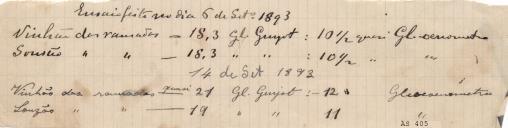 Ensaio feito no dia 6 de Set.º 1893
Vinhão das ramadas — 18,3 Gl. Guyot : 10 1/2 quasi Gleoenometro
Sousão " " — 18,3 " " : 10 1/2 " "
14 de Set 1893
Vinhão das ramadas quasi 21 Gl. Guyot : — 12 " Gleoenometro
Souzão " " — 19 " " 11 "
AS 405